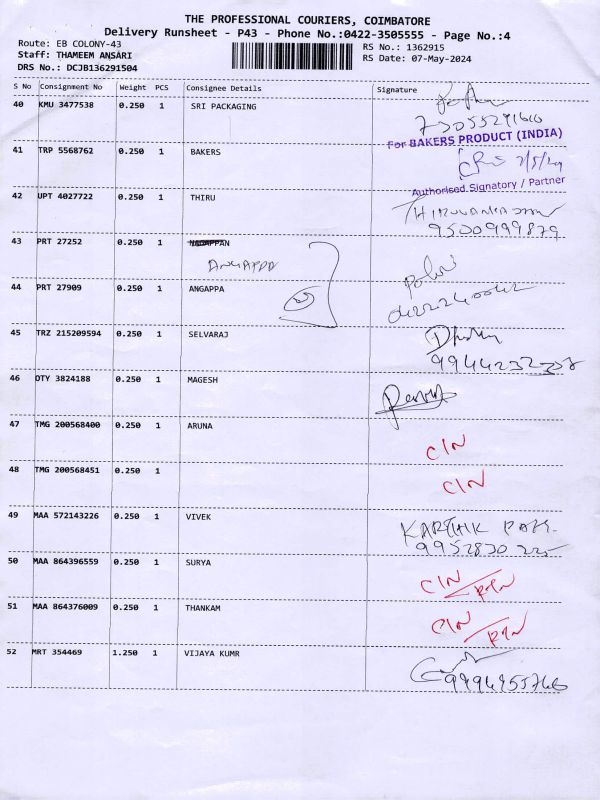 THE PROFESSIONAL COURIERS, COIMBATORE
Delivery Runsheet - P43 - Phone No.:0422-3505555 - Page No.:4
Route: EB COLONY-43
Staff: THAMEEM ANSARI
DRS No.: DCJB136291504
RS No.: 1362915
RS Date: 07-May-2024
S No Consignment No Weight PCS Consignee Details Signature
40 KMU 3477538 0.250 1 SRI PACKAGING
For BAKERS PRODUCT (INDIA)
41 TRP 5568762 0.250 1 BAKERS
7/5/24
Authorised Signatory / Partner
42 UPT 4027722 0.250 1 THIRU
9500999879
43 PRT 27252 0.250 1
ANGAPPA
44 PRT 27909 0.250 1 ANGAPPA
45 TRZ 215209594 0.250 1 SELVARAJ
9944232307
46 OTY 3824188 0.250 1 MAGESH
47 TMG 200568400 0.250 1 ARUNA
C/N
48 TMG 200568451 0.250 1
C/N
49 MAA 572143226 0.250 1 VIVEK
KARTHIK
9952820225
50 MAA 864396559 0.250 1 SURYA
C/N
51 MAA 864376009 0.250 1 THANKAM
C/N
52 MRT 354469 1.250 1 VIJAYA KUMR
9994955746